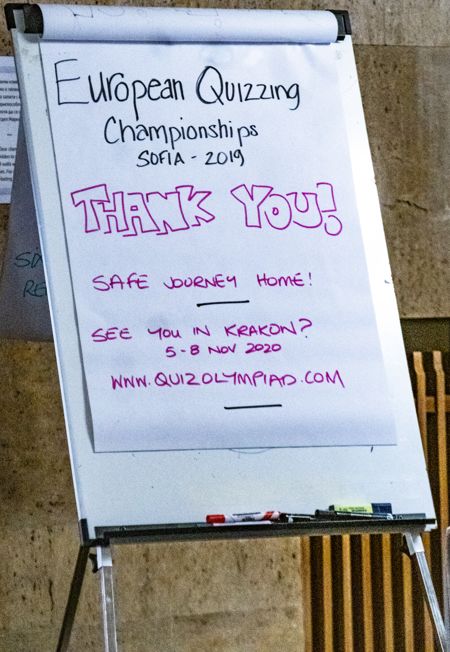 European Quizzing
Championships
SOFIA - 2019
THANK YOU!
SAFE JOURNEY HOME!
SEE YOU IN KRAKOW?
5-8 NOV 2020
WWW.QUIZOLYMPIAD.COM